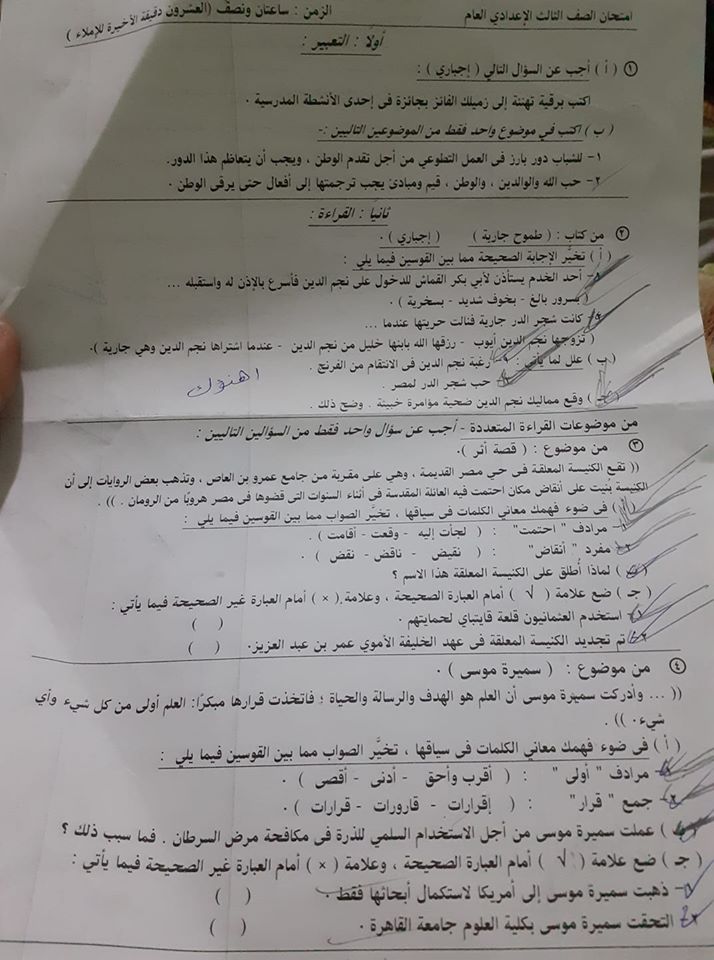 امتحان الصف الثالث الإعدادي العام الزمن : ساعتان ونصف (العشرون دقيقة الأخيرة للإملاء )
أولاً : التعبير :
١ ( أ ) أجب عن السؤال التالي ( إجباري ) :
اكتب برقية تهنئة إلى زميلك الفائز بجائزة فى إحدى الأنشطة المدرسية .
( ب ) اكتب في موضوع واحد فقط من الموضوعين التاليين :-
١- للشباب دور بارز فى العمل التطوعي من أجل تقدم الوطن ، ويجب أن يتعاظم هذا الدور.
٢- حب الله والوالدين ، والوطن ، قيم ومبادئ يجب ترجمتها إلى أفعال حتى يرقى الوطن .
ثانياً : القراءة :
٢ من كتاب : ( طموح جارية ) ( إجباري ) .
( أ ) تخيَّر الإجابة الصحيحة مما بين القوسين فيما يلي :
١- أحد الخدم يستأذن لأبي بكر القماش للدخول على نجم الدين فأسرع بالإذن له واستقبله ...
( بسرور بالغ - بخوف شديد - بسخرية ) .
٢- كانت شجر الدر جارية فنالت حريتها عندما ...
( تزوجها نجم الدين أيوب - رزقها الله بابنها خليل من نجم الدين - عندما اشتراها نجم الدين وهي جارية ).
( ب ) علل لما يأتي : ١- رغبة نجم الدين فى الانتقام من الفرنج .
٢- حب شجر الدر لمصر .
( جـ ) وقع مماليك نجم الدين ضحية مؤامرة خبيثة . وضح ذلك .
اهنؤك
من موضوعات القراءة المتعددة - أجب عن سؤال واحد فقط من السؤالين التاليين :
٣ من موضوع : ( قصة أثر ) .
(( تقع الكنيسة المعلقة فى حي مصر القديمة ، وهي على مقربة من جامع عمرو بن العاص ، وتذهب بعض الروايات إلى أن
الكنيسة بُنيت على أنقاض مكان احتمت فيه العائلة المقدسة فى أثناء السنوات التى قضوها فى مصر هروبًا من الرومان . )) .
( أ ) فى ضوء فهمك معاني الكلمات فى سياقها ، تخيَّر الصواب مما بين القوسين فيما يلي :
١- مرادف " احتمت" : ( لجأت إليه - وقعت - أقامت ) .
٢- مفرد " أنقاض" : ( نقيض - ناقض - نقض ) .
( ب ) لماذا أُطلق على الكنيسة المعلقة هذا الاسم ؟
( جـ ) ضع علامة ( √ ) أمام العبارة الصحيحة ، وعلامة ( × ) أمام العبارة غير الصحيحة فيما يأتي :
١- استخدم العثمانيون قلعة قايتباي لحمايتهم . ( )
٢- تم تجديد الكنيسة المعلقة فى عهد الخليفة الأموي عمر بن عبد العزيز. ( )
٤ من موضوع : ( سميرة موسى ) .
(( ... وأدركت سميرة موسى أن العلم هو الهدف والرسالة والحياة ؛ فاتخذت قرارها مبكرًا: العلم أولى من كل شيء وأي
شيء. )) .
( أ ) فى ضوء فهمك معاني الكلمات فى سياقها ، تخيَّر الصواب مما بين القوسين فيما يلي :
١- مرادف " أولى " : ( أقرب وأحق - أدنى - أقصى ) .
٢- جمع " قرار" : ( إقرارات - قارورات - قرارات ) .
( ب ) عملت سميرة موسى من أجل الاستخدام السلمي للذرة فى مكافحة مرض السرطان . فما سبب ذلك ؟
( جـ ) ضع علامة ( √ ) أمام العبارة الصحيحة ، وعلامة ( × ) أمام العبارة غير الصحيحة فيما يأتي :
١- ذهبت سميرة موسى إلى أمريكا لاستكمال أبحاثها فقط . ( )
٢- التحقت سميرة موسى بكلية العلوم جامعة القاهرة . ( )